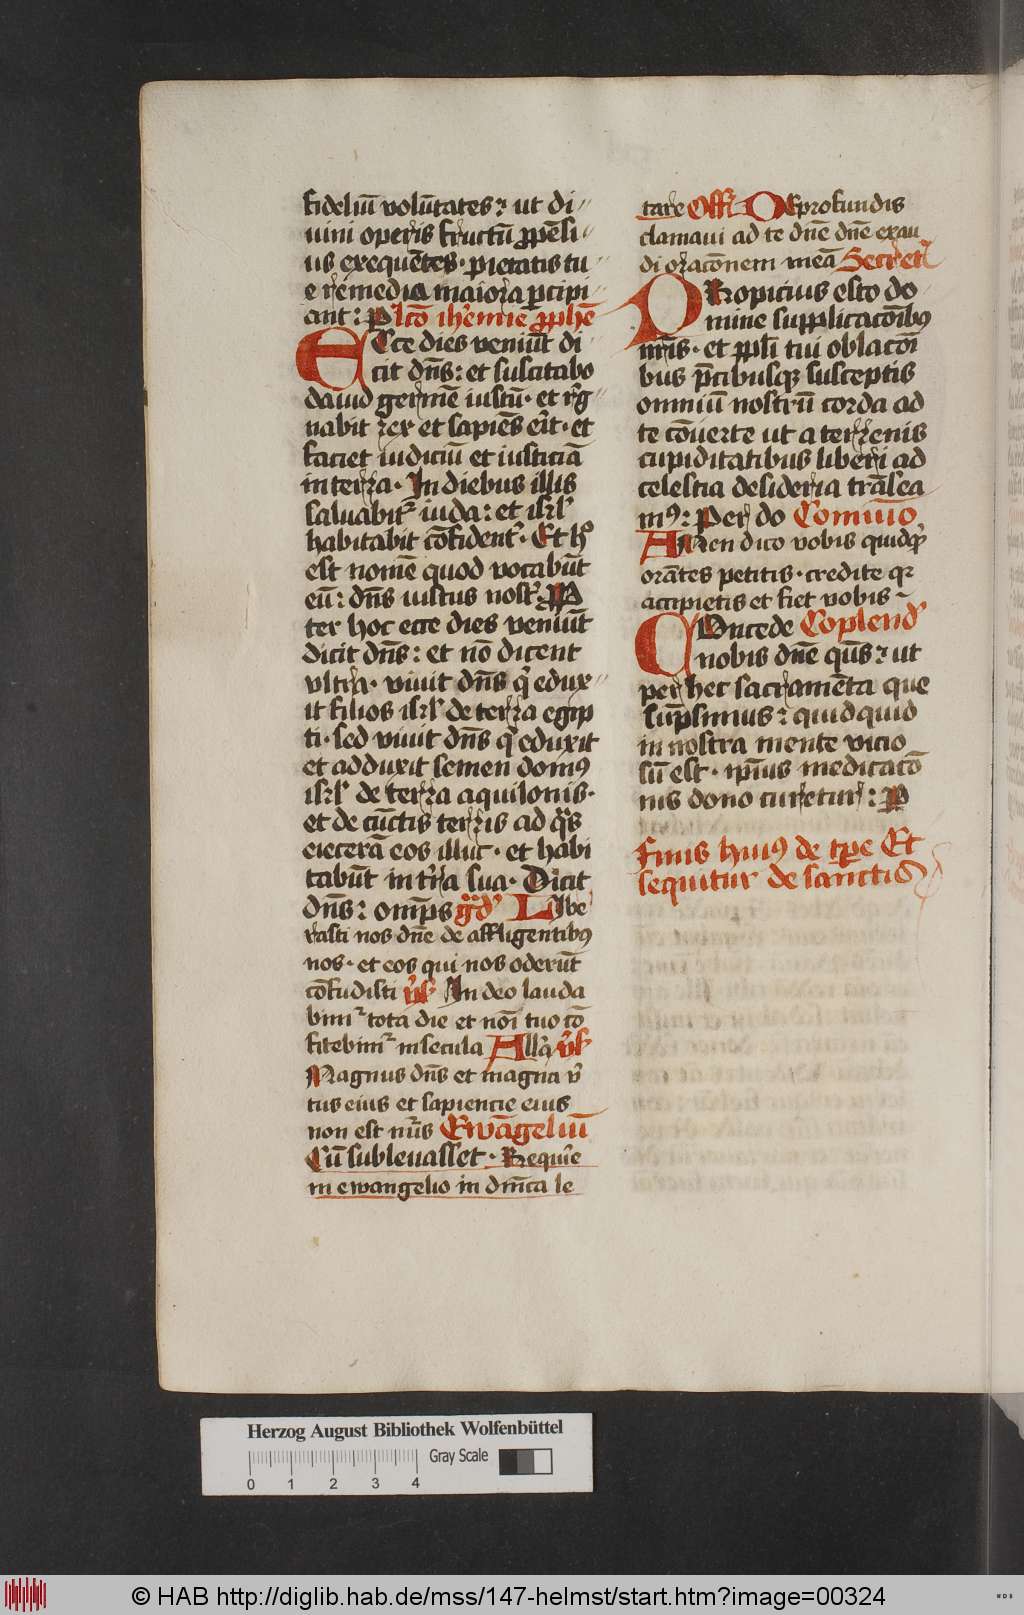 fideliū volūtates ut di
uini operis fructū ꝓpēsi
us exequētes pietatis tu
e remedia maiora ꝑcipi
ant: P lcō iheremie ꝓphē
Ecce dies veniūt di
cit dn̄s: et suscitabo
dauid germē iustū et reg
nabit rex et sapiēs erit et
faciet iudiciū et iusticiā
in terra In diebus illis
saluabit iuda: et isrl
habitabit cōfident Et hͦ
est nomē quod vocabūt
eū: dn̄s iustus nost Prop
ter hoc ecce dies veniūt
dicit dn̄s: et nō dicent
vltra viuit dn̄s q edux
it filios isrl de terra egip
ti sed viuit dn̄s q eduxit
et adduxit semen domꝰ
isrl de terra aquilonis
et de cūctis terris ad q̄s
eiecerā eos illuc et habi
tabūt in tr̄a sua Dicit
dn̄s: omp̄s gͣd Libe
rasti nos dn̄e de affligentibꝰ
nos et eos qui nos oderūt
cōfudisti vs In deo lauda
bim tota die et noī tuo cō
fitebim in secula Alla vs
Magnus dn̄s et magna v̄
tus eius et sapiencie eius
non est nūs Ewāgeliū
Cū subleuasset Require
in ewangelio in dn̄ica le
tare Off De profundis
clamaui ad te dn̄e dn̄e exau
di oracōnem meā Secret
Propicius esto do
mine supplicacōibꝰ
nr̄is et ppl̄i tui oblacōi
bus p̄cibusqꝫ susceptis
omniū nostrū corda ad
te cōuerte ut a terrenis
cupiditatibus liberi ad
celestia desideria trāsea
mꝰ: Per do Comūio
Amen dico vobis quidq
orātes petitis credite qꝛ
accipietis et fiet vobis
Concede Coplend
nobis dn̄e qs̄ ut
per hec sacramēta que
sūpsimus quidquid
in nostra mente vicio
sū est ip̄ius medicacō
nis dono curetur: P
Finis huiꝰ de tpe Et
sequitur de sanctis
Herzog August Bibliothek Wolfenbüttel
Gray Scale
0 1 2 3 4
© HAB http://diglib.hab.de/mss/147-helmst/start.htm?image=00324